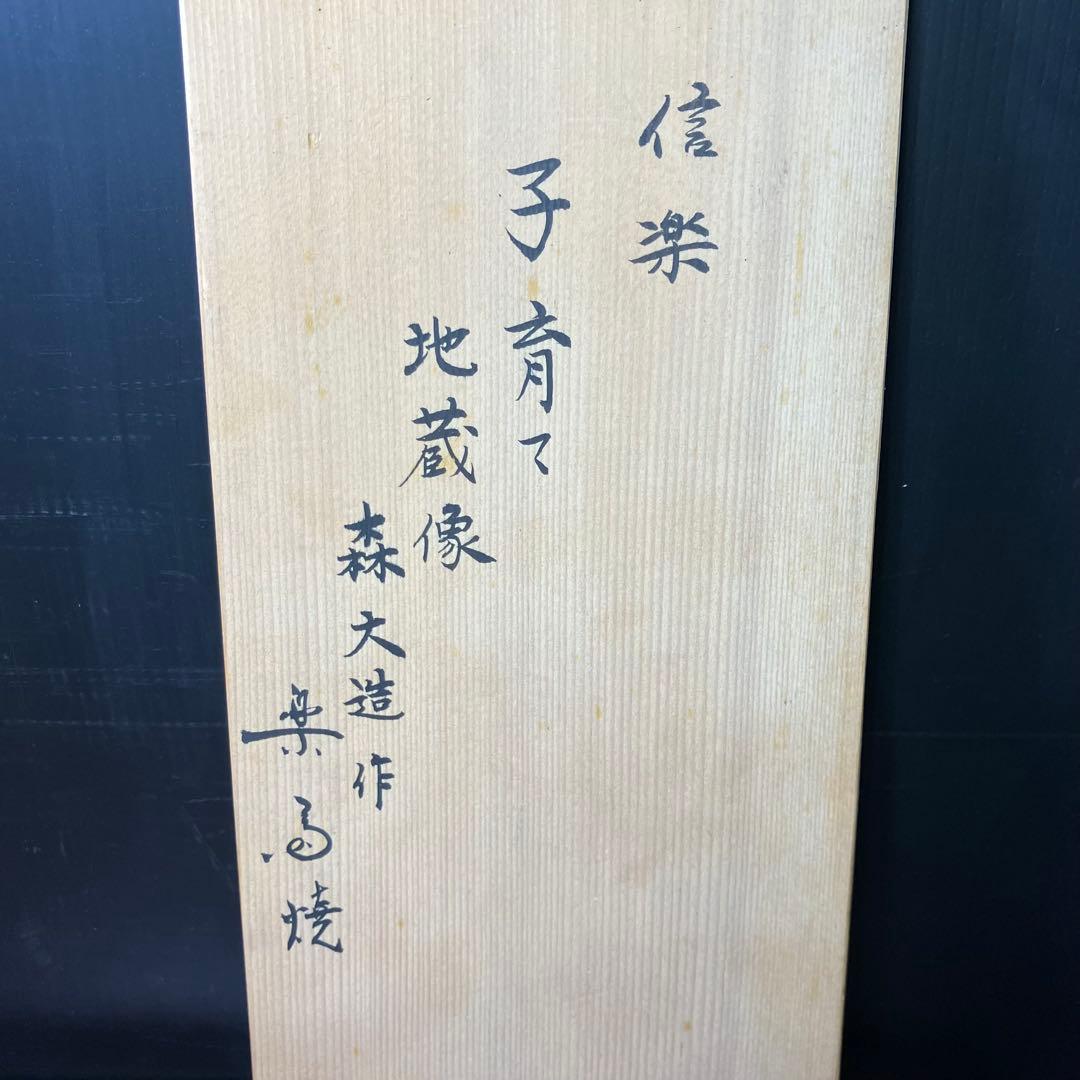 信楽
子育て
地蔵像
森大造作
楽 焼